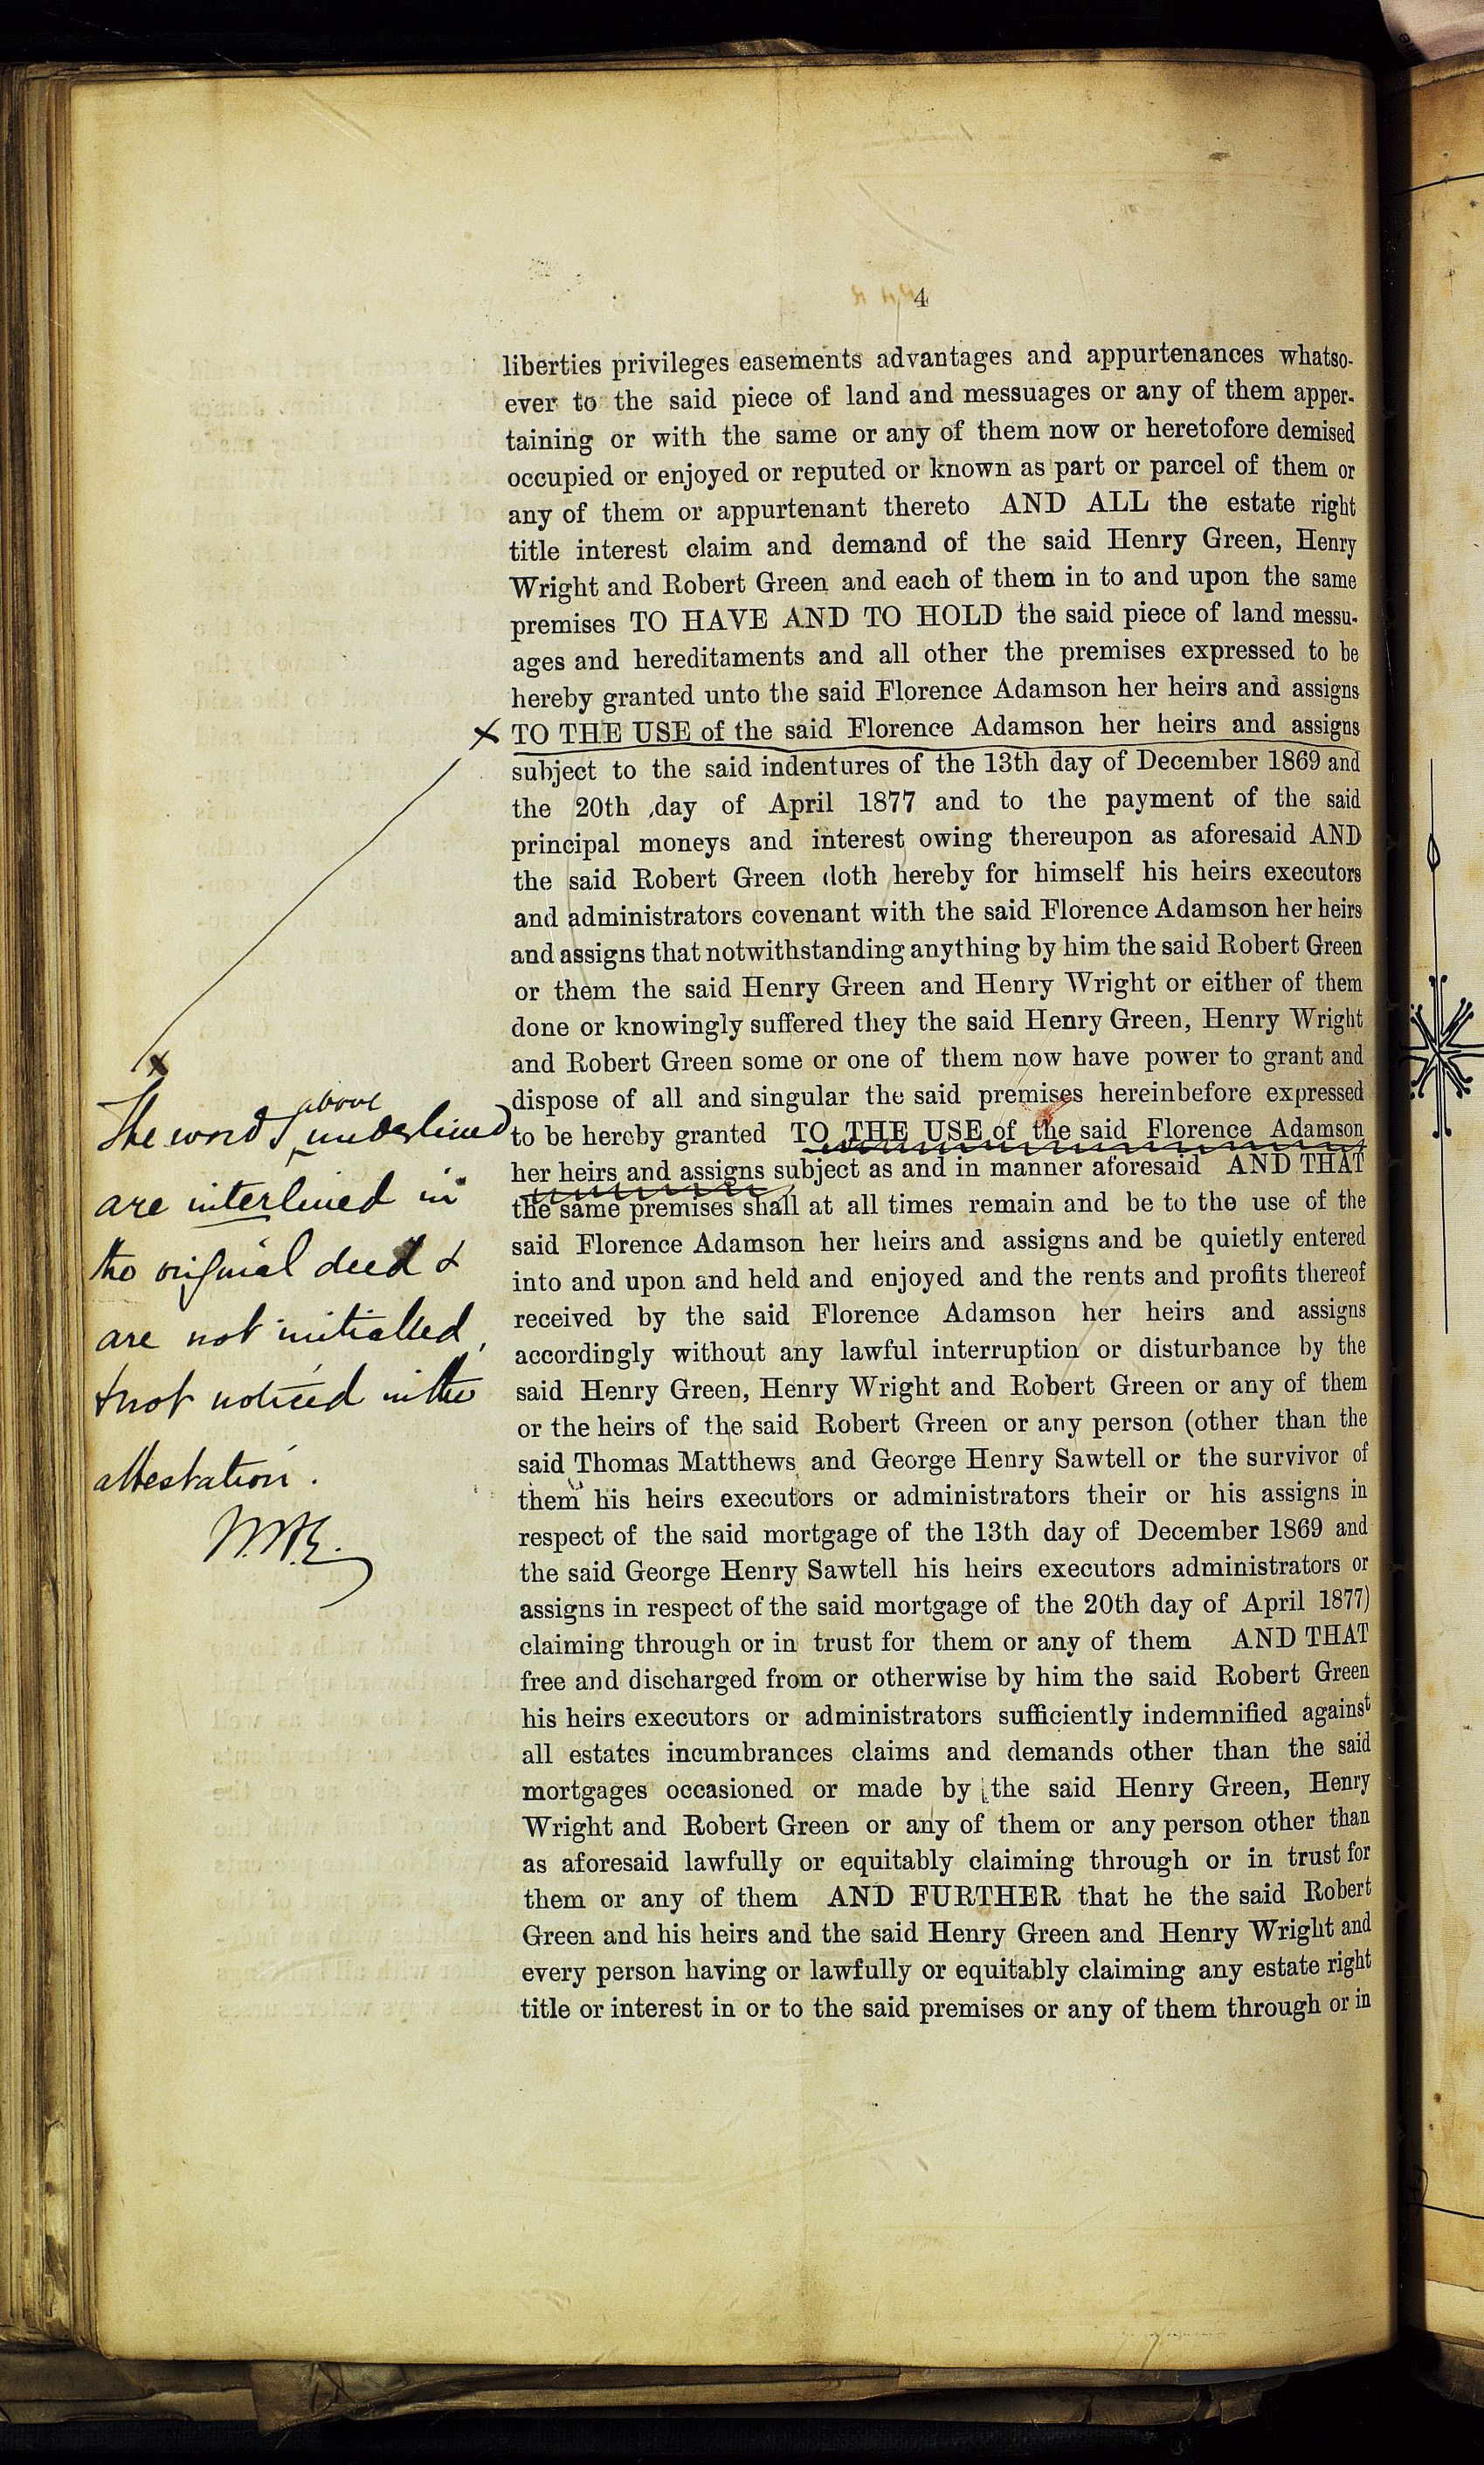 4
liberties privileges easements advantages and appurtenances whatso-
ever to the said piece of land and messuages or any of them apper-
taining or with the same or any of them now or heretofore demised
occupied or enjoyed or reputed or known as part or parcel of them or
any of them or appurtenant thereto AND ALL the estate right
title interest claim and demand of the said Henry Green, Henry
Wright and Robert Green and each of them in to and upon the same
premises TO HAVE AND TO HOLD the said piece of land messu-
ages and hereditaments and all other the premises expressed to be
hereby granted unto the said Florence Adamson her heirs and assigns
x TO THE USE of the said Florence Adamson her heirs and assigns
subject to the said indentures of the 13th day of December 1869 and
the 20th day of April 1877 and to the payment of the said
principal moneys and interest owing thereupon as aforesaid AND
the said Robert Green doth hereby for himself his heirs executors
and administrators covenant with the said Florence Adamson her heirs
and assigns that notwithstanding anything by him the said Robert Green
or them the said Henry Green and Henry Wright or either of them
done or knowingly suffered they the said Henry Green, Henry Wright
and Robert Green some or one of them now have power to grant and
dispose of all and singular the said premises hereinbefore expressed
to be hereby granted TO THE USE of the said Florence Adamson
her heirs and assigns subject as and in manner aforesaid AND THAT
the same premises shall at all times remain and be to the use of the
said Florence Adamson her heirs and assigns and be quietly entered
into and upon and held and enjoyed and the rents and profits thereof
received by the said Florence Adamson her heirs and assigns
accordingly without any lawful interruption or disturbance by the
said Henry Green, Henry Wright and Robert Green or any of them
or the heirs of the said Robert Green or any person (other than the
said Thomas Matthews and George Henry Sawtell or the survivor of
them his heirs executors or administrators their or his assigns in
respect of the said mortgage of the 13th day of December 1869 and
the said George Henry Sawtell his heirs executors administrators or
assigns in respect of the said mortgage of the 20th day of April 1877)
claiming through or in trust for them or any of them AND THAT
free and discharged from or otherwise by him the said Robert Green
his heirs executors or administrators sufficiently indemnified against
all estates incumbrances claims and demands other than the said
mortgages occasioned or made by the said Henry Green, Henry
Wright and Robert Green or any of them or any person other than
as aforesaid lawfully or equitably claiming through or in trust for
them or any of them AND FURTHER that he the said Robert
Green and his heirs and the said Henry Green and Henry Wright and
every person having or lawfully or equitably claiming any estate right
title or interest in or to the said premises or any of them through or in
x
above
The words underlined
are interlined in
the original deed &
are not initialled,
& not noticed in the
attestation.